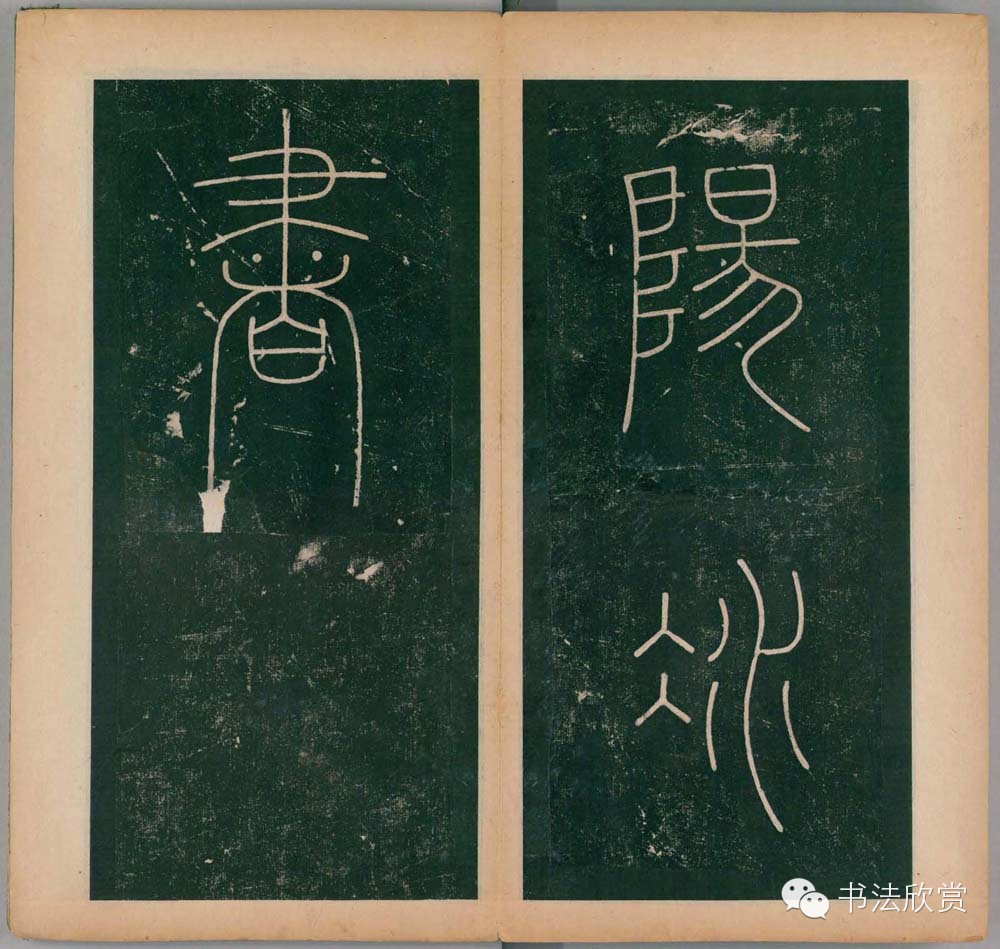 陽冰
書
书法欣赏